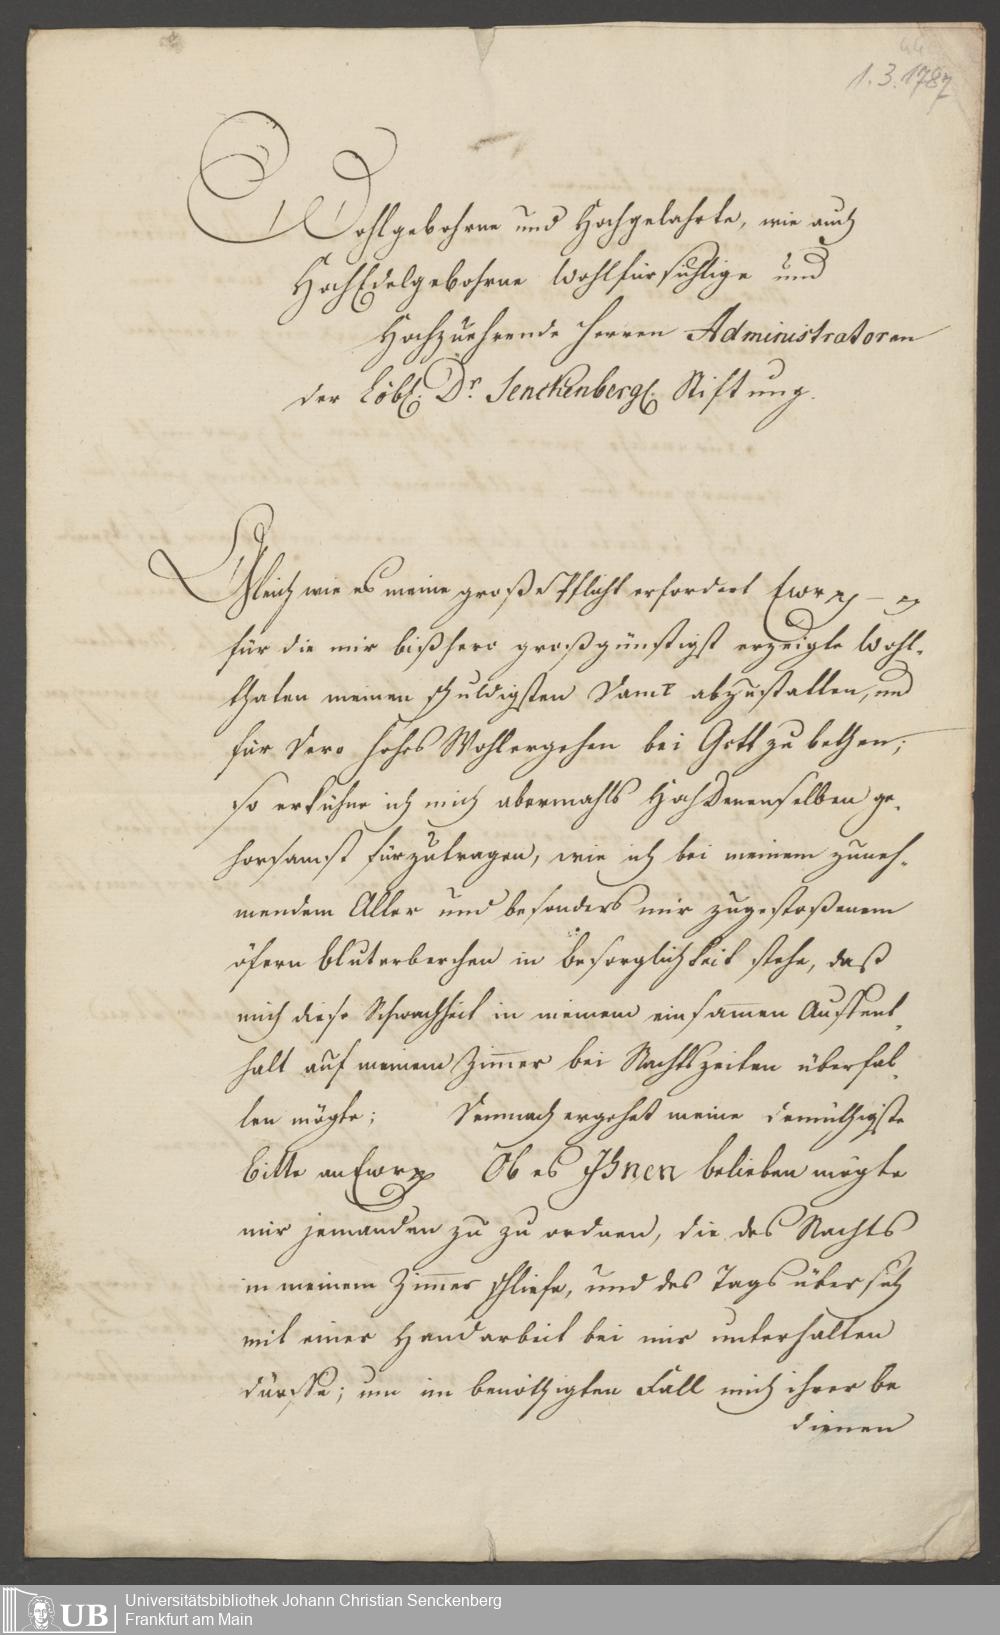 44
1.3.1787
Wohlgebohrne und Hochgelahrte, wie auch
HochEdelgebohrne Wohlfürsichtige und
Hochzuehrende Herren Administratoren
der Löbl. Dr. Senckenbergl. Stiftung.
Gleich wie es meine große Pflicht erfordert Ewr
für die mir bißhero großgünstigst erzeigte Wohl-
thaten meinen schuldigsten Danck abzustatten, und
für Dero hohes Wohlergehen bei Gott zu bethen;
so erkühne ich mich abermahls HochDenenselben ge-
horsamst fürzutragen, wie ich bei meinem zuneh-
mendem Alter und besonders mir zugestoßenem
öfern bluterberchen in besorglichkeit stehe, daß
mich diese Schwachheit in meinem einsamen Auffent-
halt auf meinem Zimmer bei Nachtszeiten überfal-
len mögte; Demnach ergehet meine demüthigste
bitte an Ewr Ob es Ihnen belieben mögte
mir jemanden zu zu ordnen, die des Nachts
in meinem Zimmer schliefe, und des Tags über sich
mit einer Handarbeit bei mir unterhalten
dürffe; um im benöthigten Fall mich ihrer be
dienen
UB
Universitätsbibliothek Johann Christian Senckenberg
Frankfurt am Main